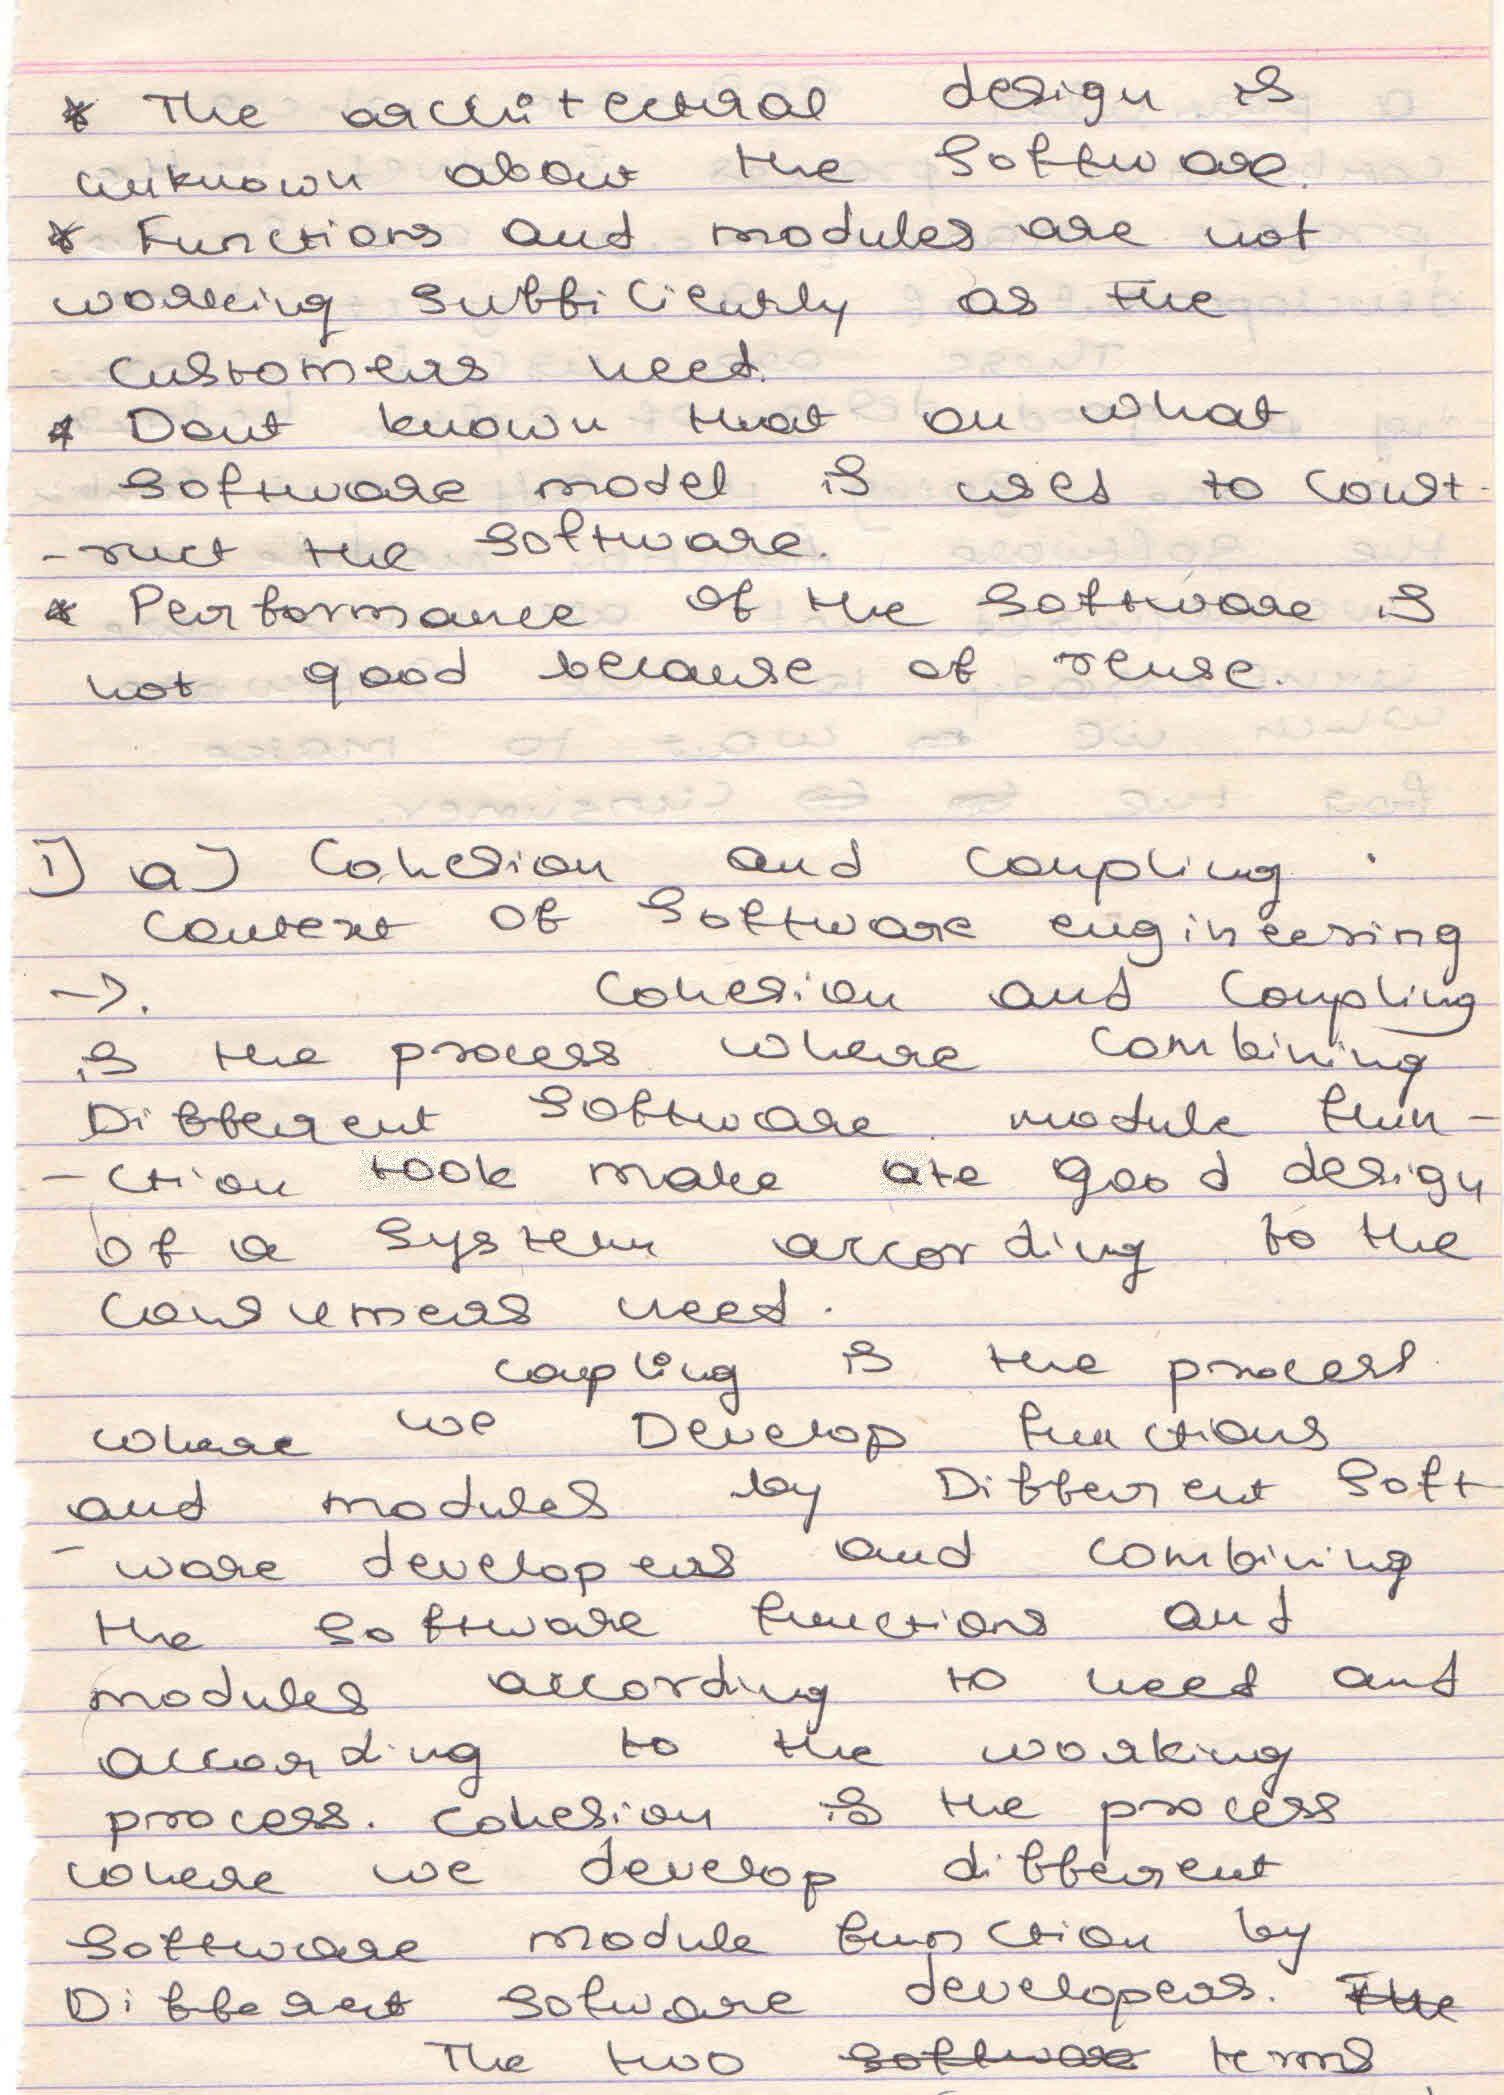 * The architectral design is
unknown about the Software.
* Functions and modules are not
working sufficiently as the
customers need.
* Dont known that on what
software model is used to const-
-ruct the software.
* Performance of the software is
not good because of reuse.
1) a) Cohesion and coupling.
context of software engineering
->. Cohesion and Coupling
is the process where combining
Different software module fun-
-ction took make are good design
of a system according to the
consumers need.
coupling is the process
where we Develop functions
and modules by Different soft
-ware developers and combining
the software functions and
modules according to need and
according to the working
process. cohesion is the process
where we develop different
software module function by
Different sotware developers. The
The two software terms